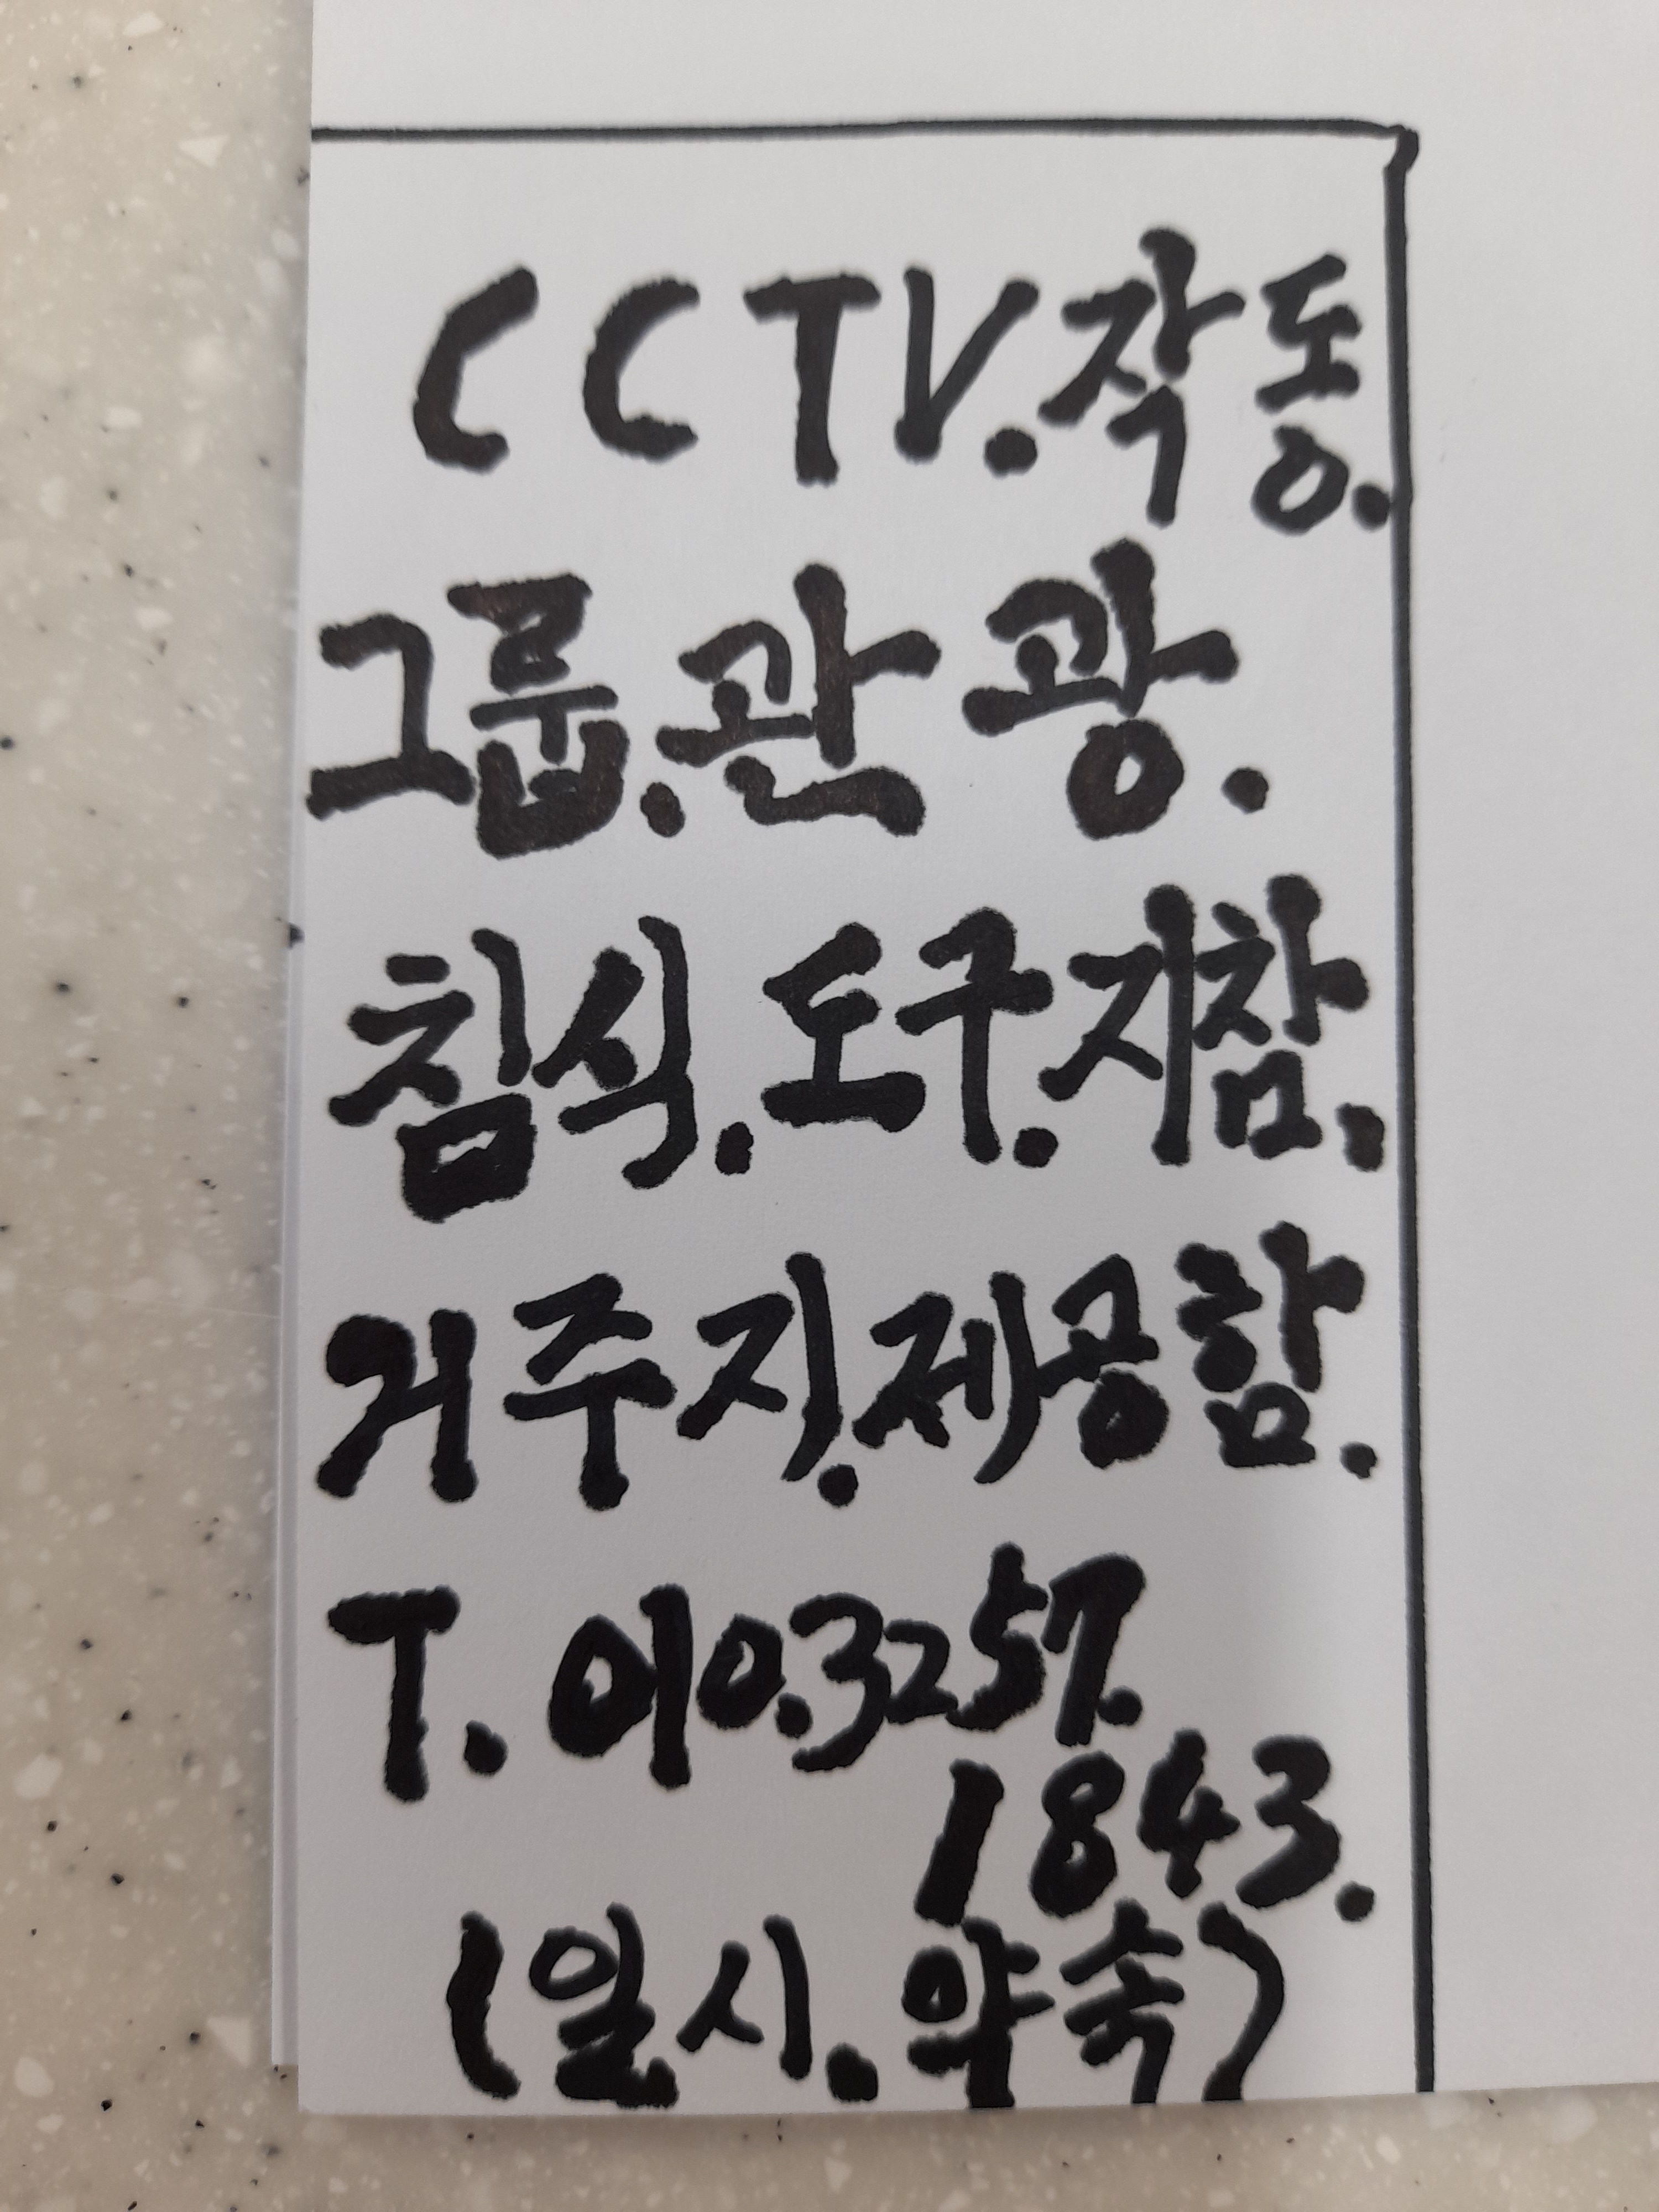 CCTV.작동.
그룹.관광.
침식.도구.지참.
거주지.제공함.
T.010.3257.
1843.
(일시.약속)